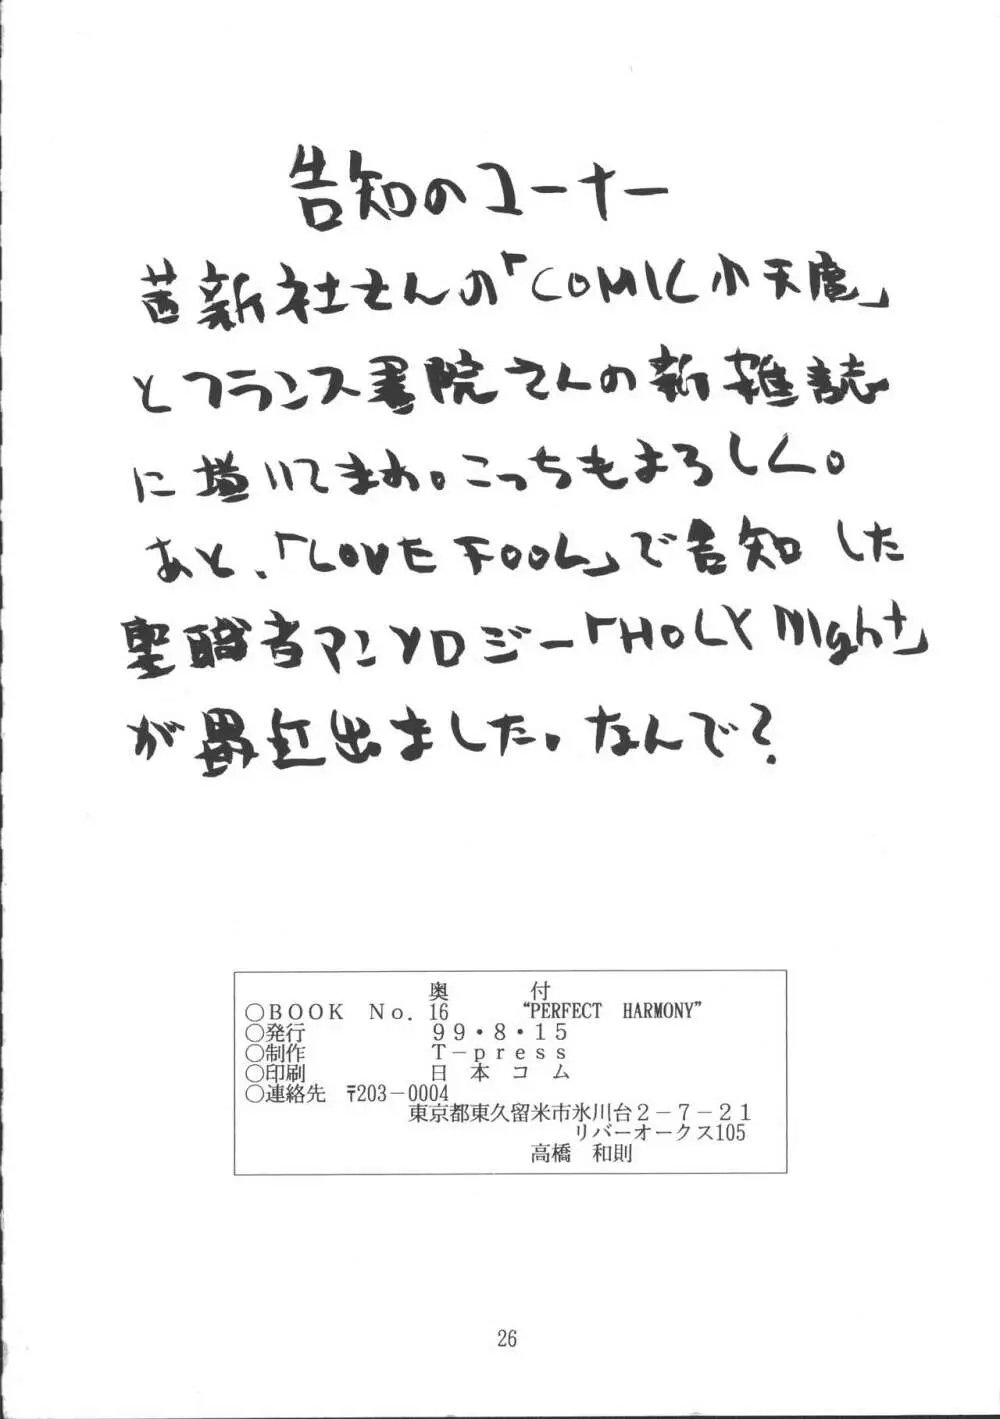 告知のコーナー
茜新社さんの「COMIC小天魔」
とフランス書院さんの新雑誌
に描いてまわ。こっちもよろしく。
あと、「LOVE FOOL」で告知した
聖職者アンソロジー「HOLY Night」
が 出ました。なんで?
奥 付
○BOOK No.16 “PERFECT HARMONY”
○発行 99・8・15
○制作 T-press
○印刷 日本コム
○連絡先 〒203-0004
東京都東久留米市氷川台2-7-21
リバーオークス105
高橋 和則
26